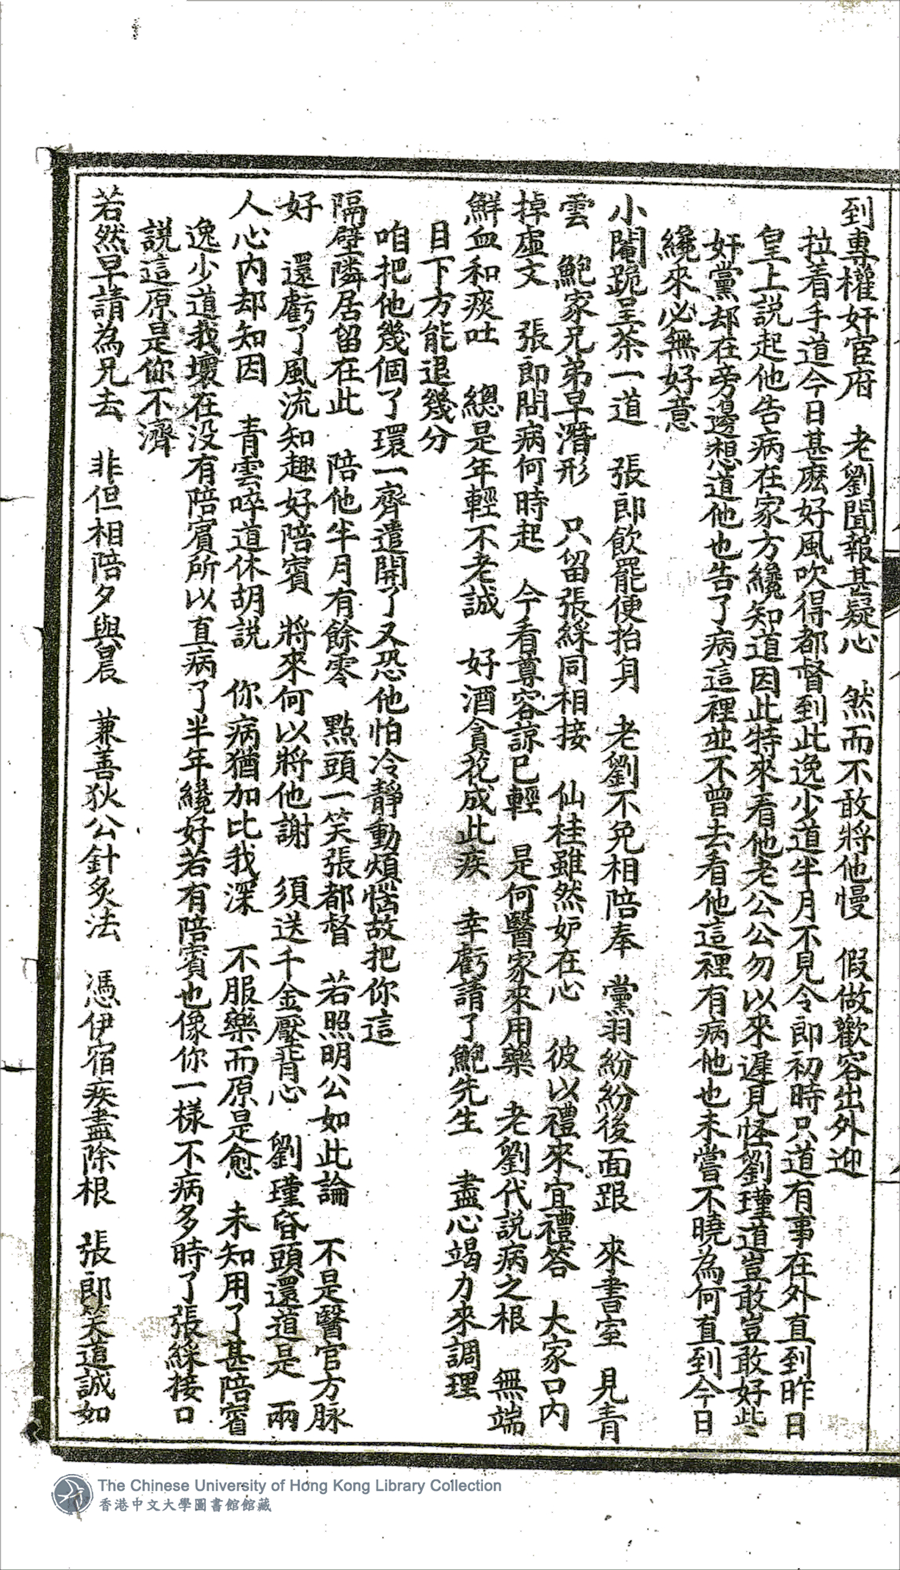 到專權奸宦府　老劉聞報甚疑心　然而不敢將他慢　假做歡容出外迎
拉着手道今日甚麽好風吹得都督到此逸少道半月不見令郎初時只道有事在外直到昨日
皇上說起他告病在家方纔知道因此特來看他老公公勿以來遲見怪劉瑾道豈敢豈敢好些
奸黨却在旁邊想道他也告了病這裡並不曾去看他這裡有病他也未嘗不曉為何直到今日
纔來必無好意
小閹跪呈茶一道　張郎飲罷便抬身　老劉不免相陪奉　黨羽紛紛後面跟　來書室　見青
雲　鮑家兄弟早潛形　只留張綵同相接　仙桂雖然妒在心　彼以禮來宜禮答　大家口內
掉虛文　張郎問病何時起　今看尊容諒已輕　是何醫家來用藥　老劉代說病之根　無端
鮮血和痰吐　總是年輕不老誠　好酒貪花成此疾　幸虧請了鮑先生　盡心竭力來調理
目下方能退幾分
咱把他幾個了環一齊遣開了又恐他怕冷靜動煩惱故把你這
隔壁隣居留在此　陪他半月有餘零　點頭一笑張都督　若照明公如此論　不是醫官方脉
好　還虧了風流知趣好陪賓　將來何以將他謝　須送千金壓背心　劉瑾昏頭還道是　兩
人心內却知因　青雲啐道休胡說　你病猶加比我深　不服藥而原是愈　未知用了甚陪賓
逸少道我壞在没有陪賓所以直病了半年纔好若有陪賓也像你一樣不病多時了張綵接口
說這原是你不濟
若然早請為兄去　非但相陪夕與晨　兼善狄公針炙法　馮伊宿疾盡除根　張郎笑道誠如
The Chinese University of Hong Kong Library Collection
香港中文大學圖書館館藏